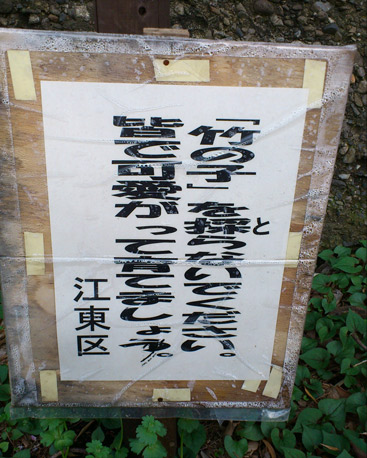 「竹の子」を採らないでください。
と
皆で可愛がって育てましょう。
江東区